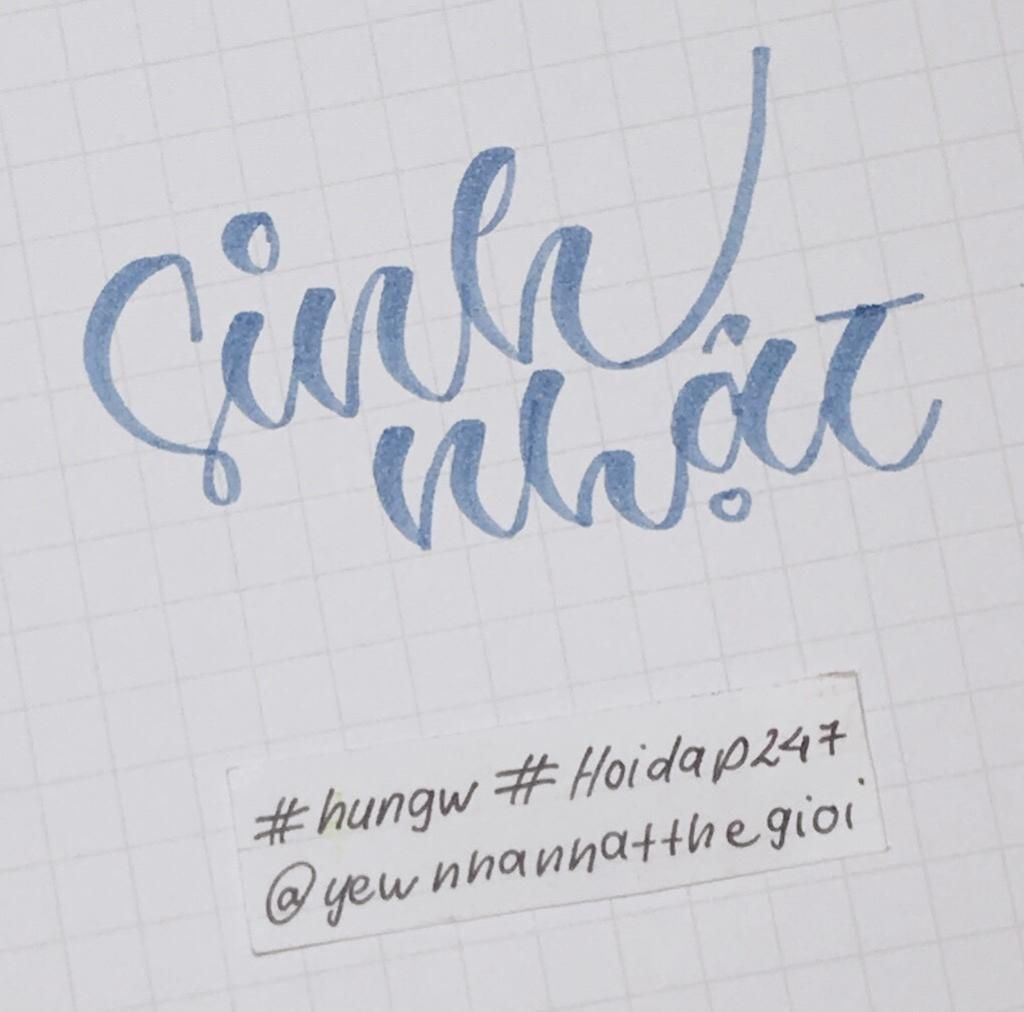 Sinh
nhật
#hungw #Hoidap247
@yewnhannhatthegioi